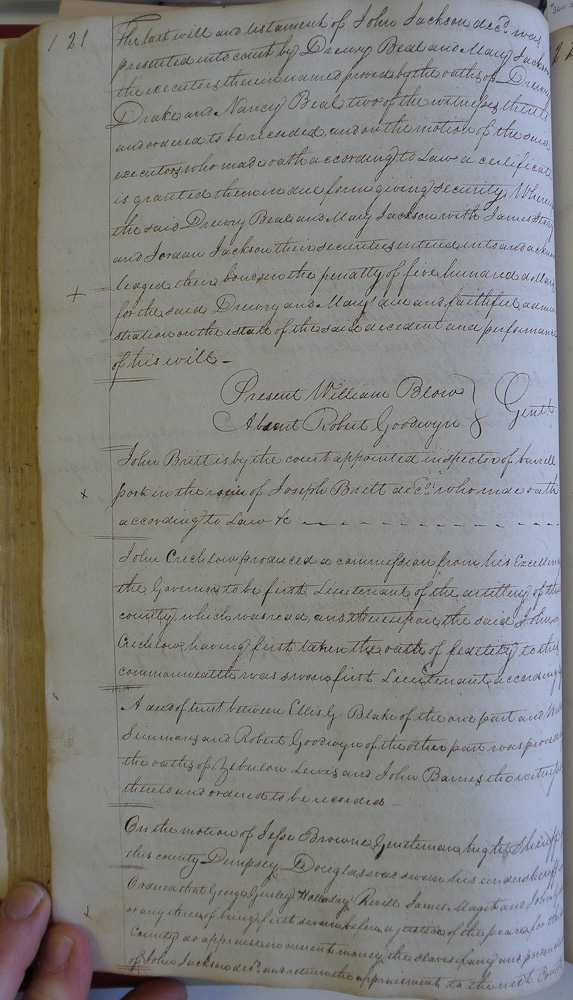 121
The last will and testament of John Jackson decd. was
presented into court by Drewry Beal and Mary Jackson
the executors therein named proved by the oaths of Drewry
Drake and Nancy Beal two of the witnesses thereto
and ordered to be recorded, and on the motion of the said
executors who made oath according to Law a certificate
is granted them in due form giving security. Whereu
the said Drewry Beal and Mary Jackson with James
and Jordan Jackson their securities entered into and acknow
ledged their bond in the penalty of five hundred dollars
for the said Drewry and Mary's due and faithful admini
stration on the estate of the said decedent and performance
of his will –
Present William Blow } Gent.
Absent Robert Goodwyn
John Britt is by the court appointed inspector of barrell
pork in the room of Joseph Britt decd. who made oath
according to Law &c
John Crichlow produced a commission from his Excellen
the Governor to be first Lieutenant of the artillery of this
county, which was read, and thereupon the said John
Crichlow having first taken the oath of fidelity to this
commonwealth was sworn first Lieutenant accordingly
A deed of trust between Ellis G. Blake of the one part and
Simmons and Robert Goodwyn of the other part was proved
the oaths of Zebulon Lewis and John Barnes the witnesses
thereto and ordered to be recorded –
On the motion of Jesse Browne Gentleman high Sheriff
this county Dempsey Douglas was sworn his undersheriff
Ordered that George Gurley Holladay Revell James Maget and John
or any three of being first sworn before a justice of the peace for this
County do appraise in current money the slaves if any and personal
of John Jackson decd. and return the appraisement to the next Court